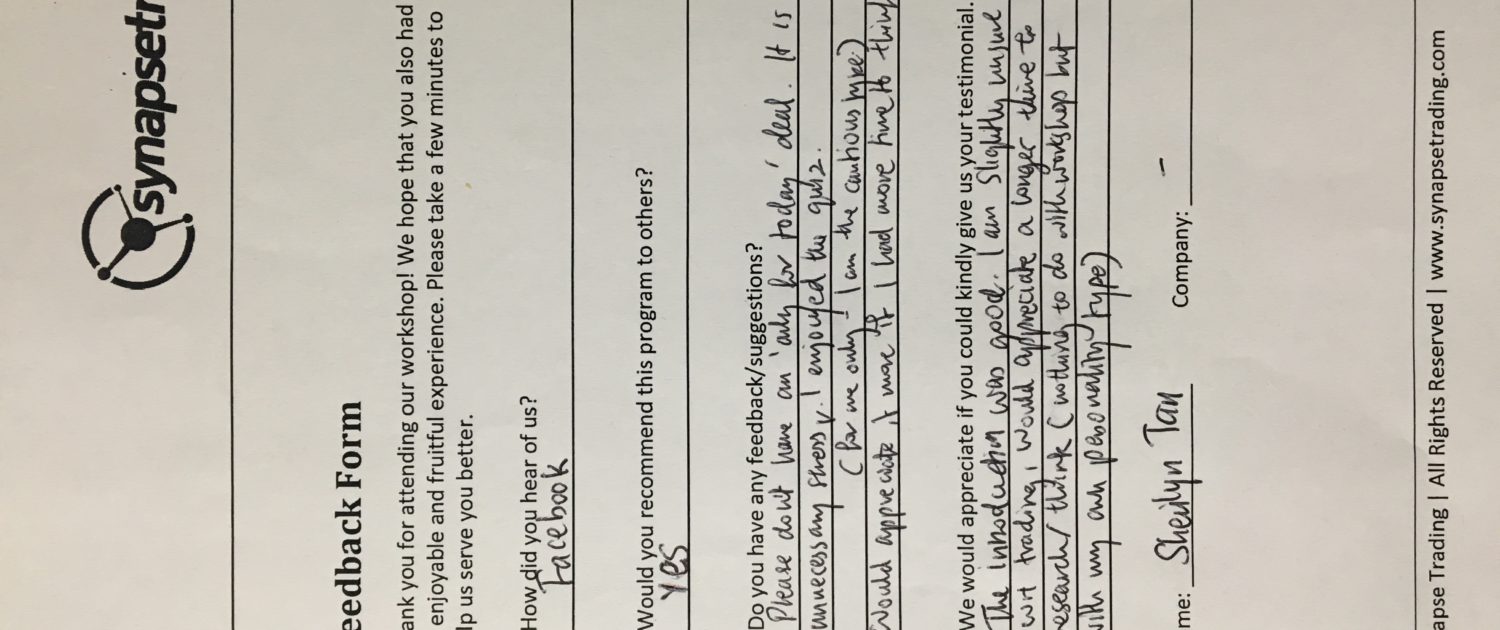 synapsetr
eedback Form
ank you for attending our workshop! We hope that you also had
enjoyable and fruitful experience. Please take a few minutes to
lp us serve you better.
How did you hear of us?
Facebook
Would you recommend this program to others?
Yes
Do you have any feedback/suggestions?
Please don't have an 'only for today' deal. It is
unnecessary stress. I enjoyed the quiz.
(for me only - I am the cautious type)
Would appreciate it more if I had more time to think
We would appreciate if you could kindly give us your testimonial.
The introduction was good. I am slightly unsure
wrt trading, would appreciate a longer time to
esearch/think (nothing to do with workshop but
with my own personality type)
me: Sheilyn Tan Company: -
apse Trading | All Rights Reserved | www.synapsetrading.com